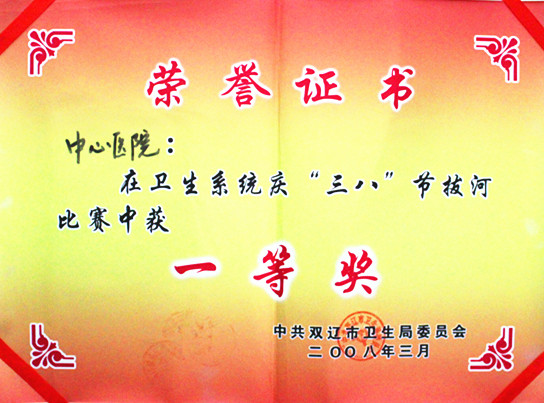 荣誉证书
中心医院：
在卫生系统庆“三八”节拔河
比赛中获
一等奖
中共双辽市卫生局委员会
二〇〇八年三月